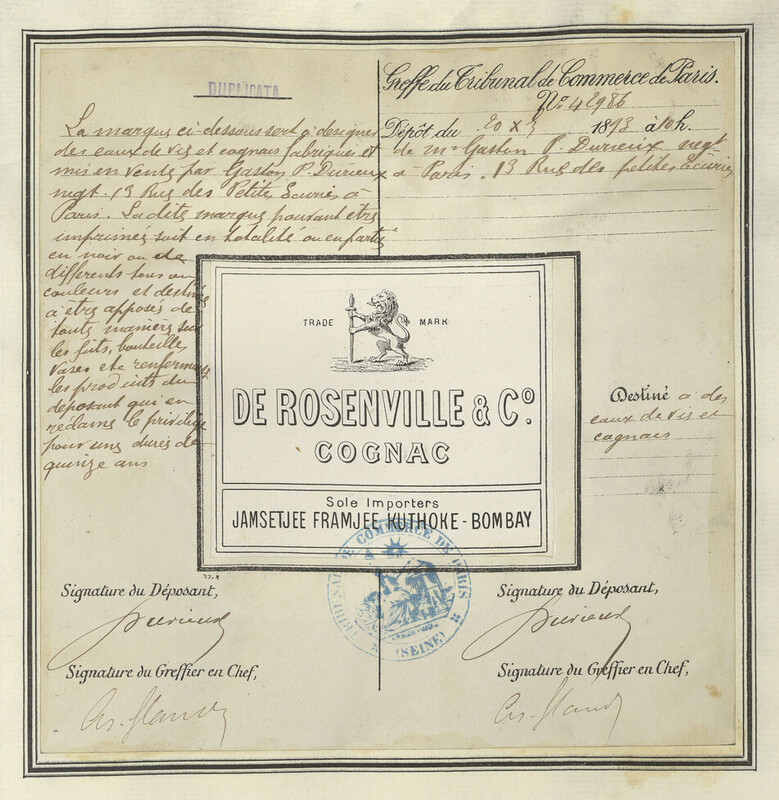 DUPLICATA
La marque ci-dessous sert à designer
des eaux de vie et cognacs fabriqués et
mis en vente par Gaston P. Durieux
negt. 13 Rue des Petites Ecuries à
Paris. La dite marque pouvant etre
imprimée soit en totalité ou en partie
en noir ou de
differents tons ou
couleurs et destinée
à etre apposée de
toute manière sur
les futs, bouteilles
vases etc renfermant
les produits du
déposant qui en
réclame le privilège
pour une durée de
quinze ans
Greffe du Tribunal de Commerce de Paris.
No. 42986
Dépôt du 20 1893 à 10 h.
de Mr Gaston P. Durieux negt
à Paris. 13 Rue des petites Ecuries
TRADE MARK
DE ROSENVILLE & Co.
COGNAC
Sole Importers
JAMSETJEE FRAMJEE KUTHOKE - BOMBAY
Destiné à des
eaux de vie et
cognacs
TRIBUNAL DE COMMERCE DE PARIS
(SEINE)
Signature du Déposant,
Durieux
Signature du Greffier en Chef,
Signature du Déposant,
Durieux
Signature du Greffier en Chef,